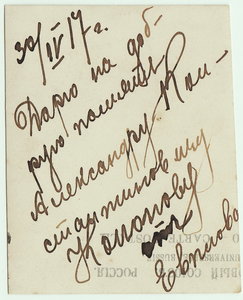 30/IV 17 г.
Дарю на доб-
рую память
Александру Кон-
стантиновичу
Кононову
отъ